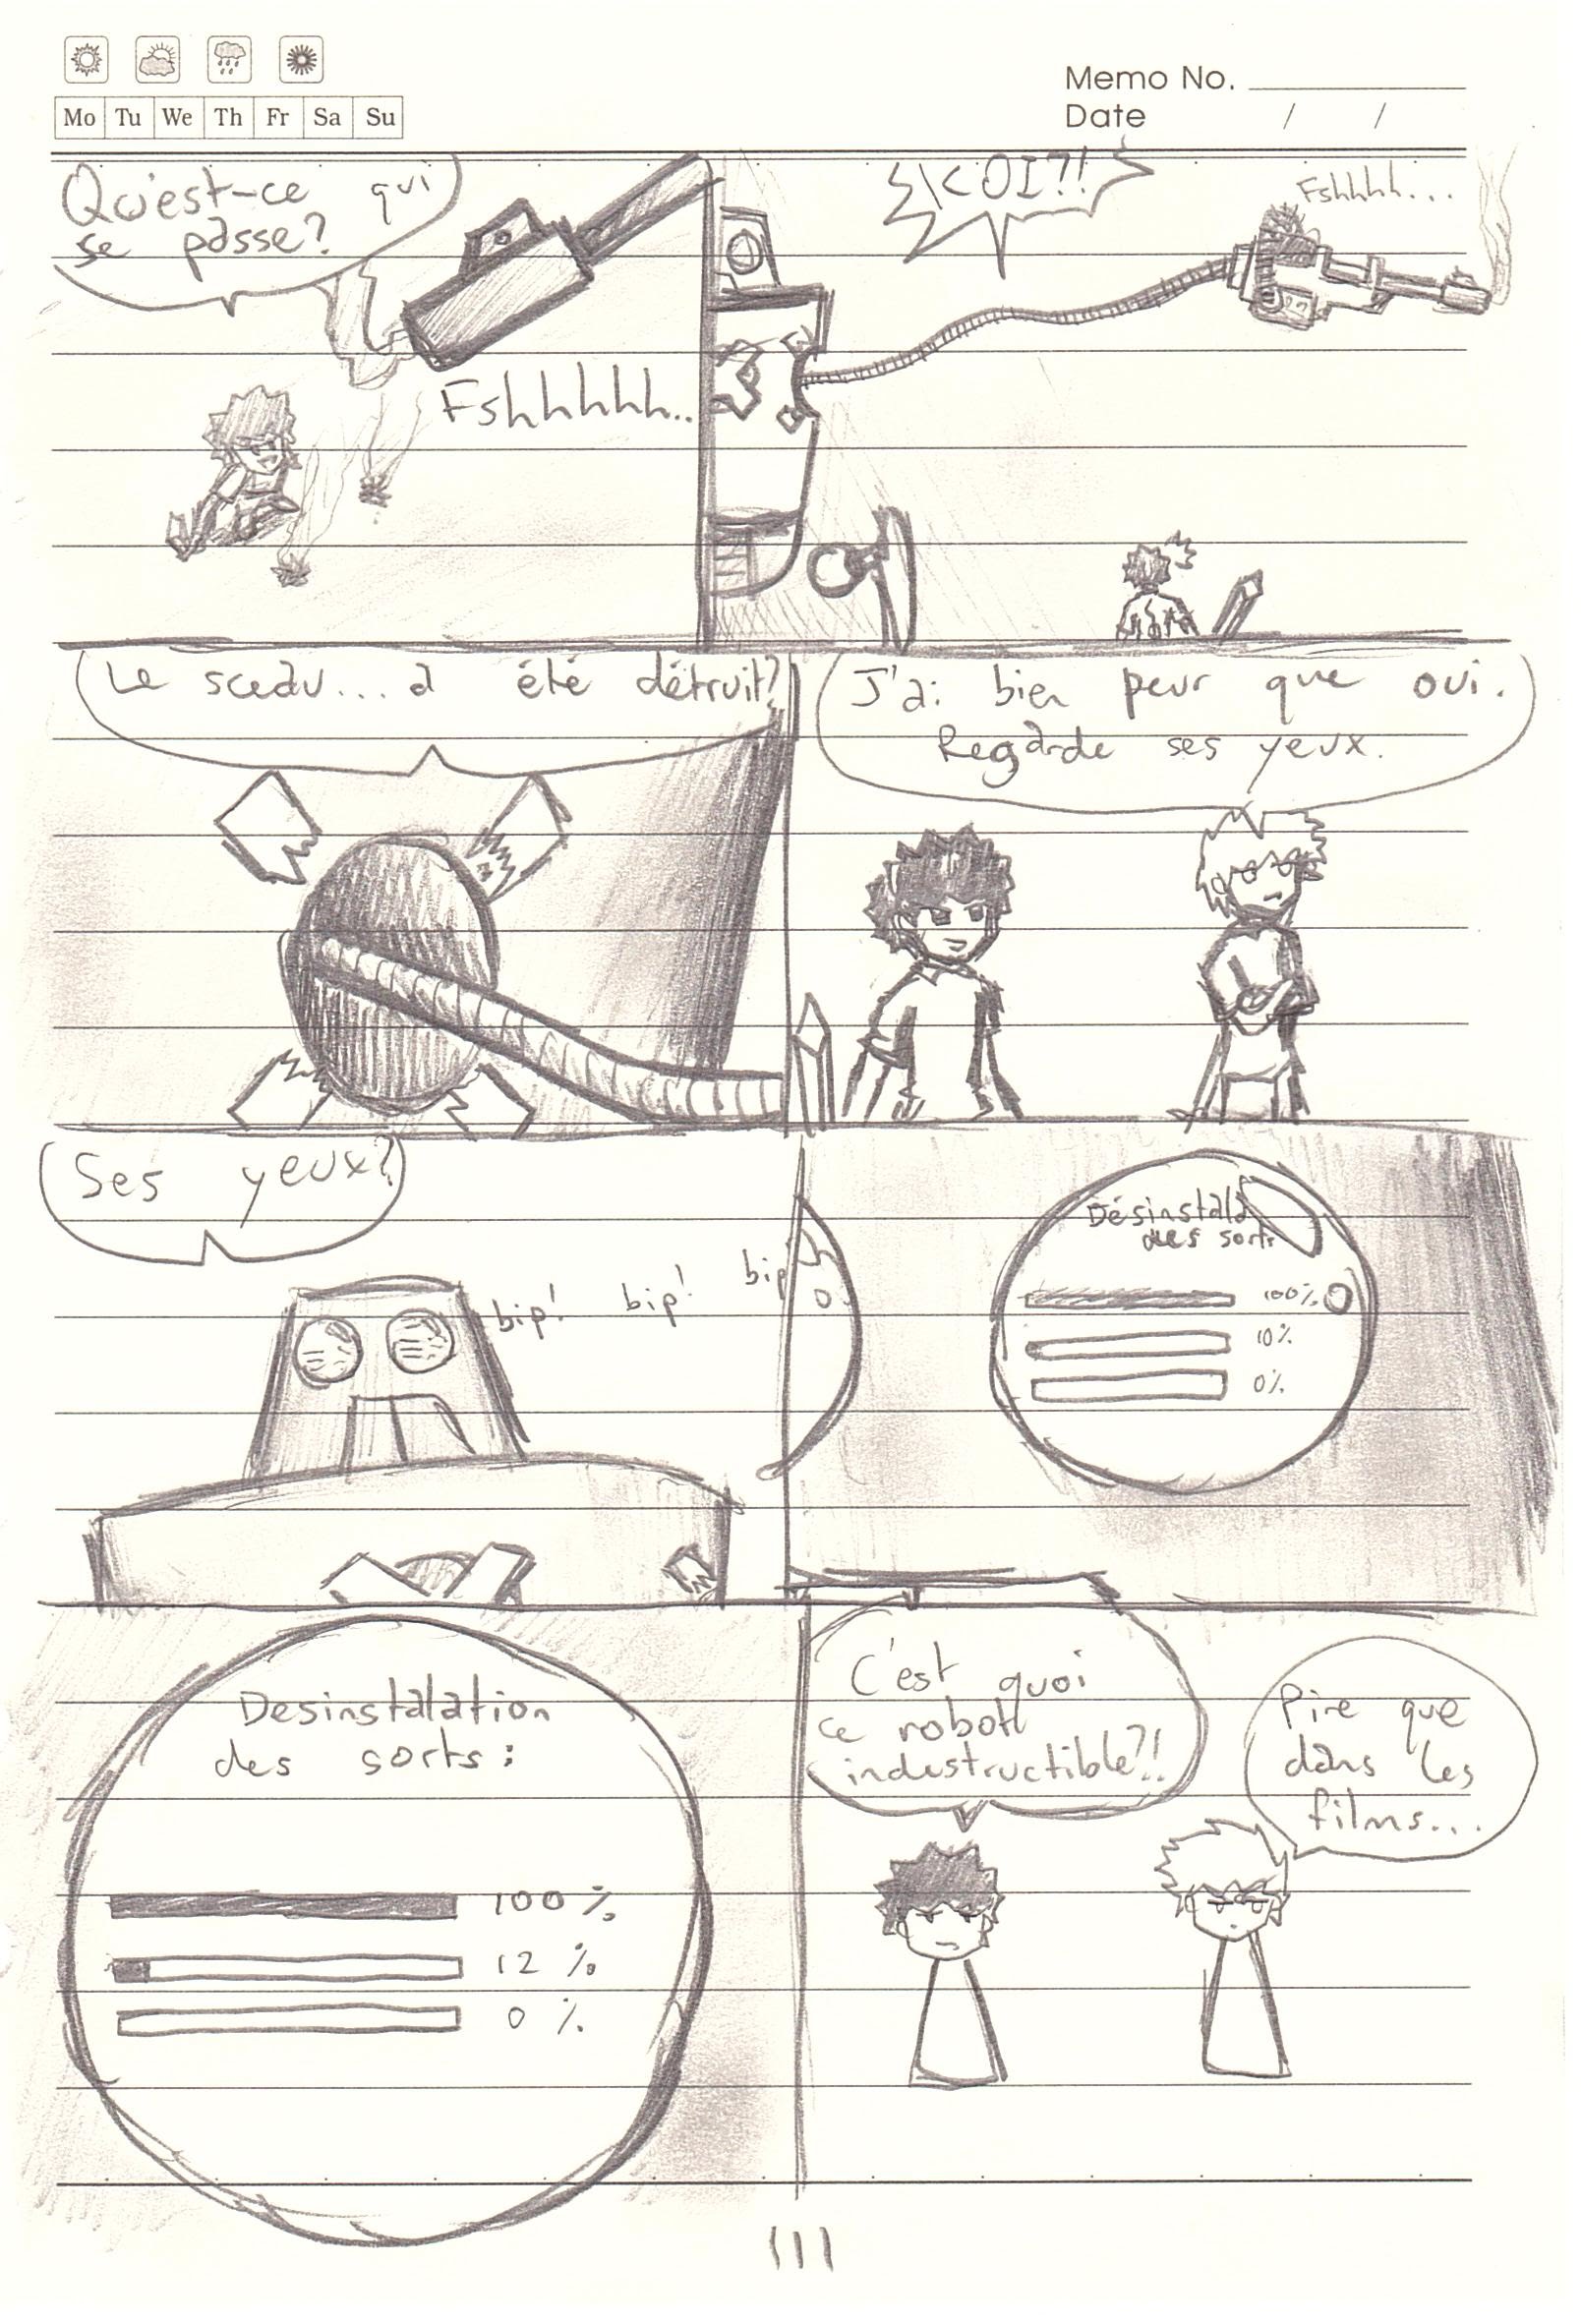 Mo Tu We Th Fr Sa Su
Memo No.
Date / /
Qu'est-ce qui
se passe?
Fshhhhhh..
KOI?!
Fshhhh...
Le sceau... a été détruit?
J'ai bien peur que oui.
Regarde ses yeux.
Ses yeux?
bip! bip! bip
Désinstala
des sorts
100%
10%
0%
Desinstalation
des sorts:
100 %
12 %
0 %
C'est quoi
ce robott
indestructible?!
Pire que
dans les
films...
111